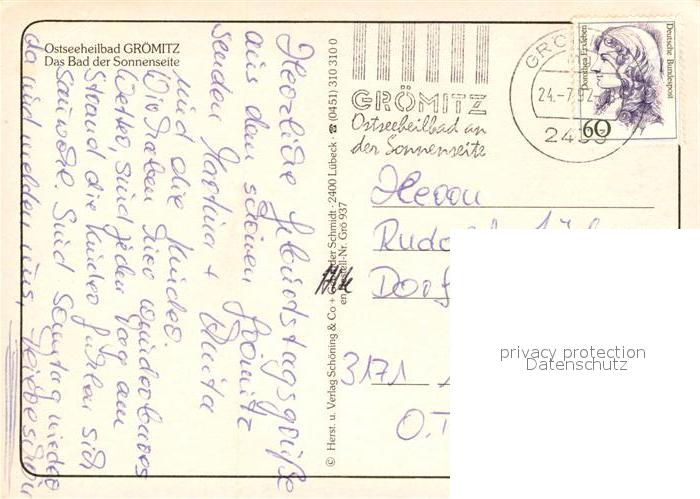 Ostseeheilbad GRÖMITZ
Das Bad der Sonnenseite
Herzliche Geburtstagsgrüße
aus dem schönen Grömitz
senden Martina + Anita
und die Kinder
Wir haben hier wunderbares
Wetter, sind jeden Tag am
Strand die Kinder fühlen sich
sauwohl. Sind Sonntag wieder
da und melden uns,
© Herst. u. Verlag Schöning & Co + Schmidt · 2400 Lübeck · ☎ (0451) 310 310 0
Bestell-Nr. Grö 937
GRÖMITZ
Ostseeheilbad an
der Sonnenseite
GRÖMITZ
24.-7.92
Dorothea Erxleben
Deutsche Bundespost
60
Herrn
Dorf
3171
O.T
privacy protection
Datenschutz